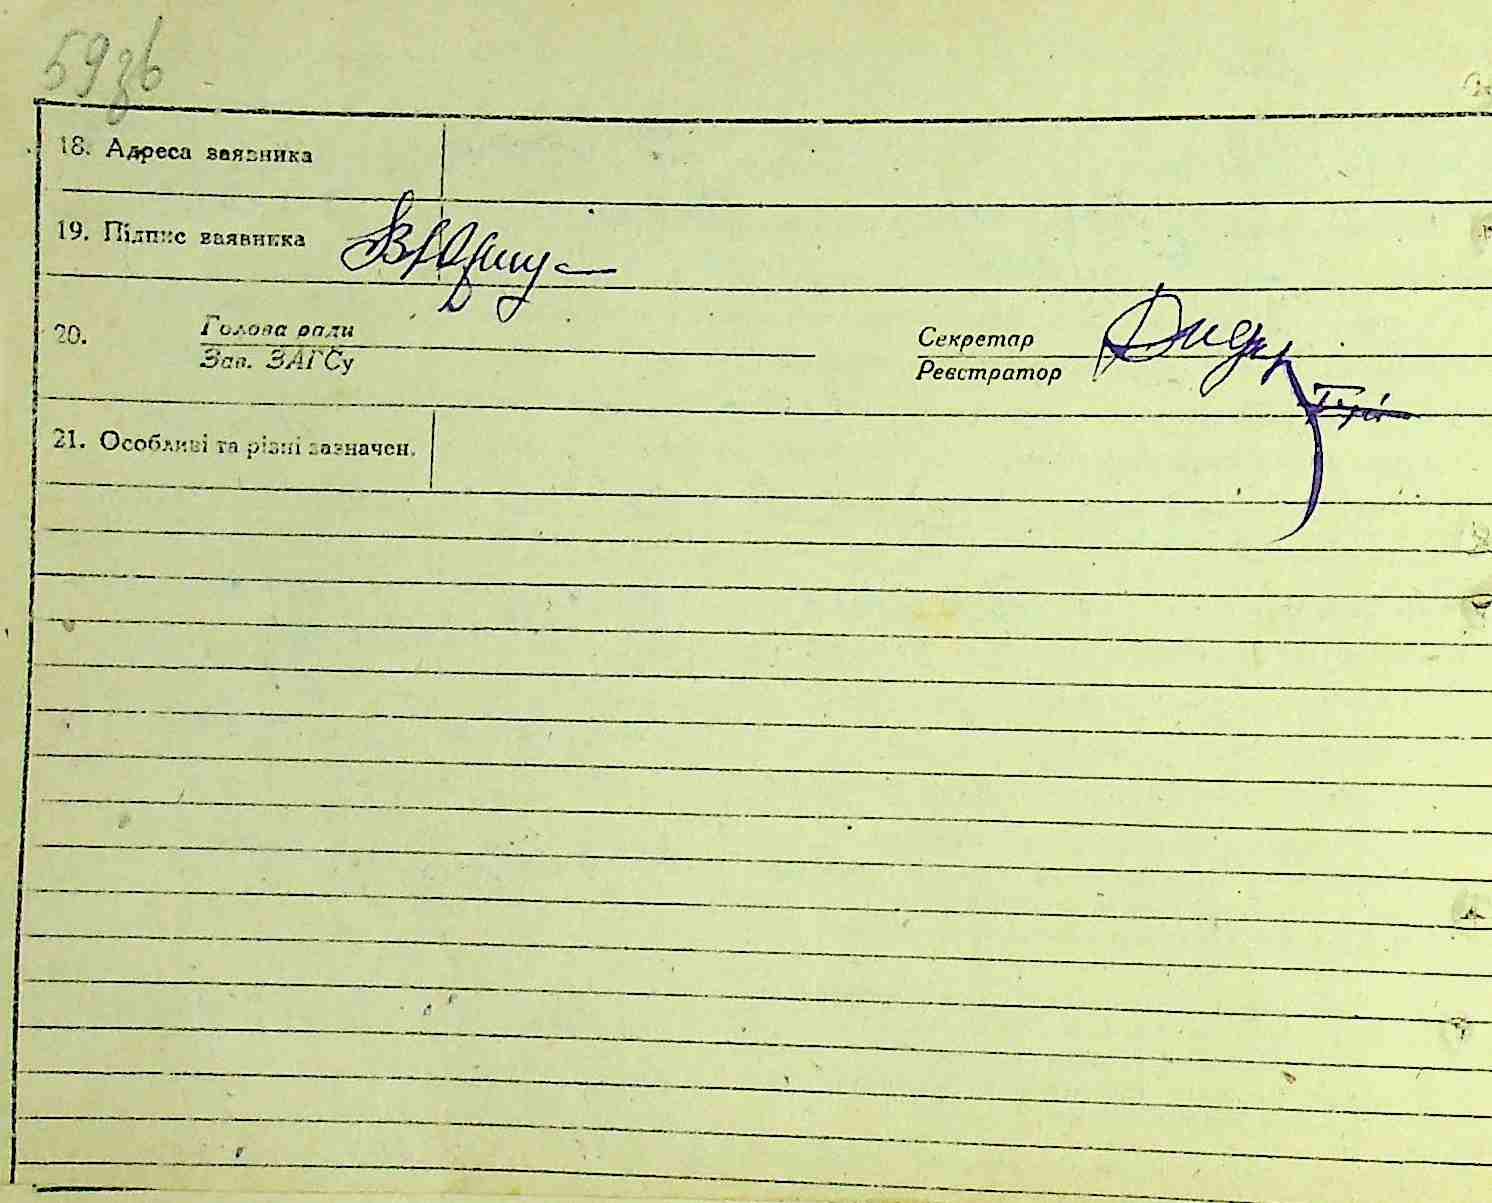 59зв
18. Адреса заявника
19. Підпис заявника
20. Голова ради Секретар
Зав. ЗАГСу Реєстратор
21. Особливі та різні зазначен.